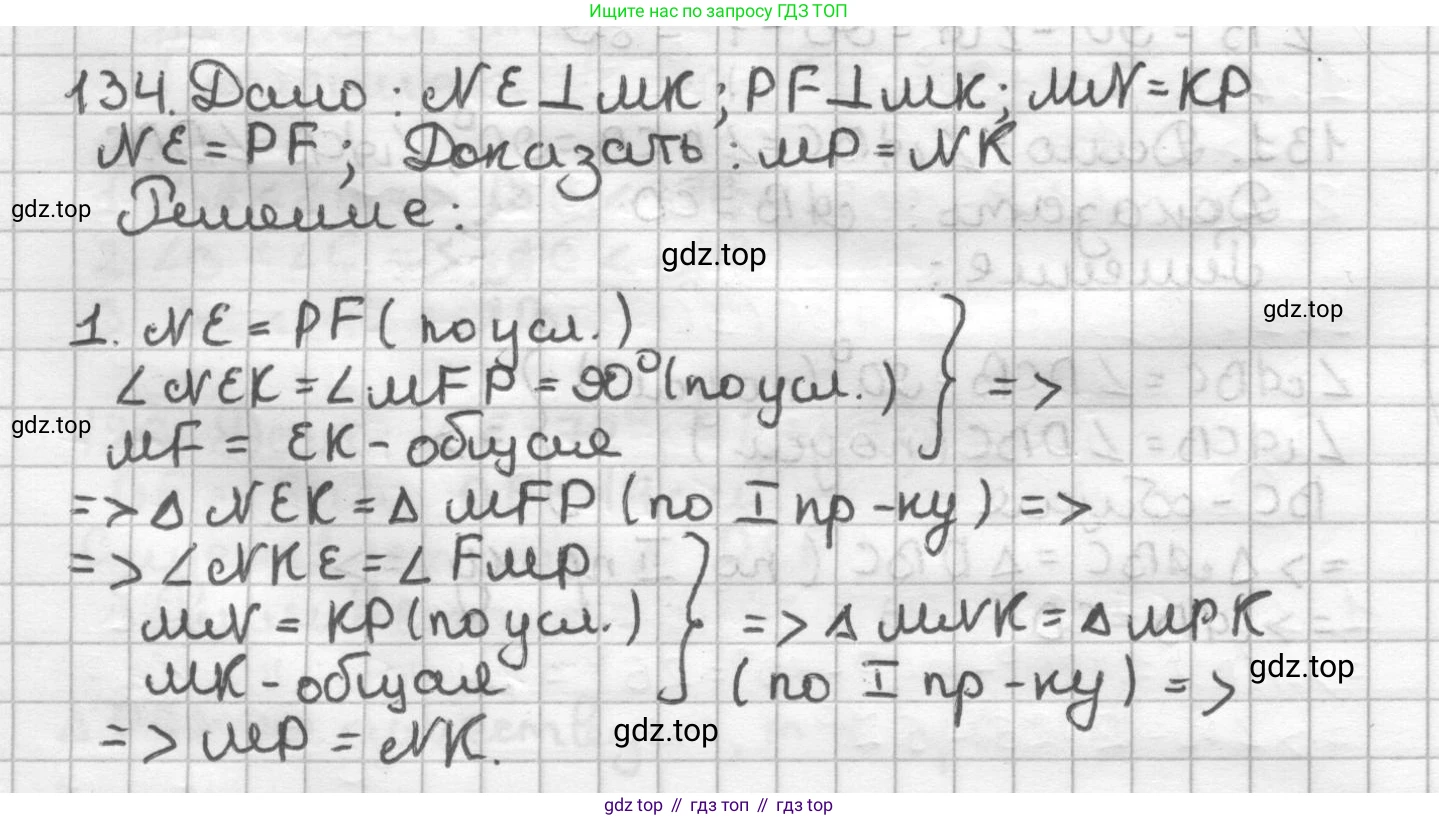 Ищите нас по запросу ГДЗ ТОП
134. Дано: NE⊥MK; PF⊥MK; MN=KP
NE=PF; Доказать: MP=NK
gdz.top Решение:
gdz.top
1. NE = PF (по усл.)
gdz.top
∠NEK=∠MFP=90°(по усл.) } =>
gdz.top MF = EK - общая
=> Δ NEK = Δ MFP (по I пр-ку) =>
=> ∠NKE = ∠FMP
MN = KP (по усл.) } => Δ MNK = Δ MPK
MK - общая (по I пр-ку) => gdz.top
=> MP = NK. gdz.top
gdz top // гдз топ // gdz top